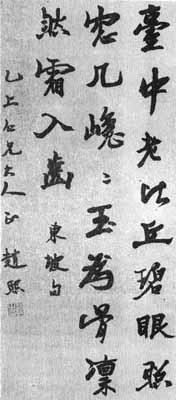 臺中老比丘碧眼照
窓几巉〻玉為骨凜
然霜入齒 東坡句
乙上仁兄大人正 趙熙